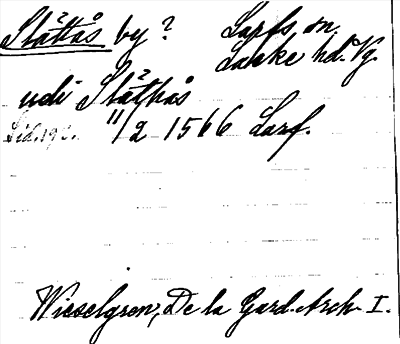 Slättås by? Larfs sn,
Laske hd. Vg.
udi Slåthås
11/2 1566 Larf.
Wieselgren, De la Gard. Arch. I.